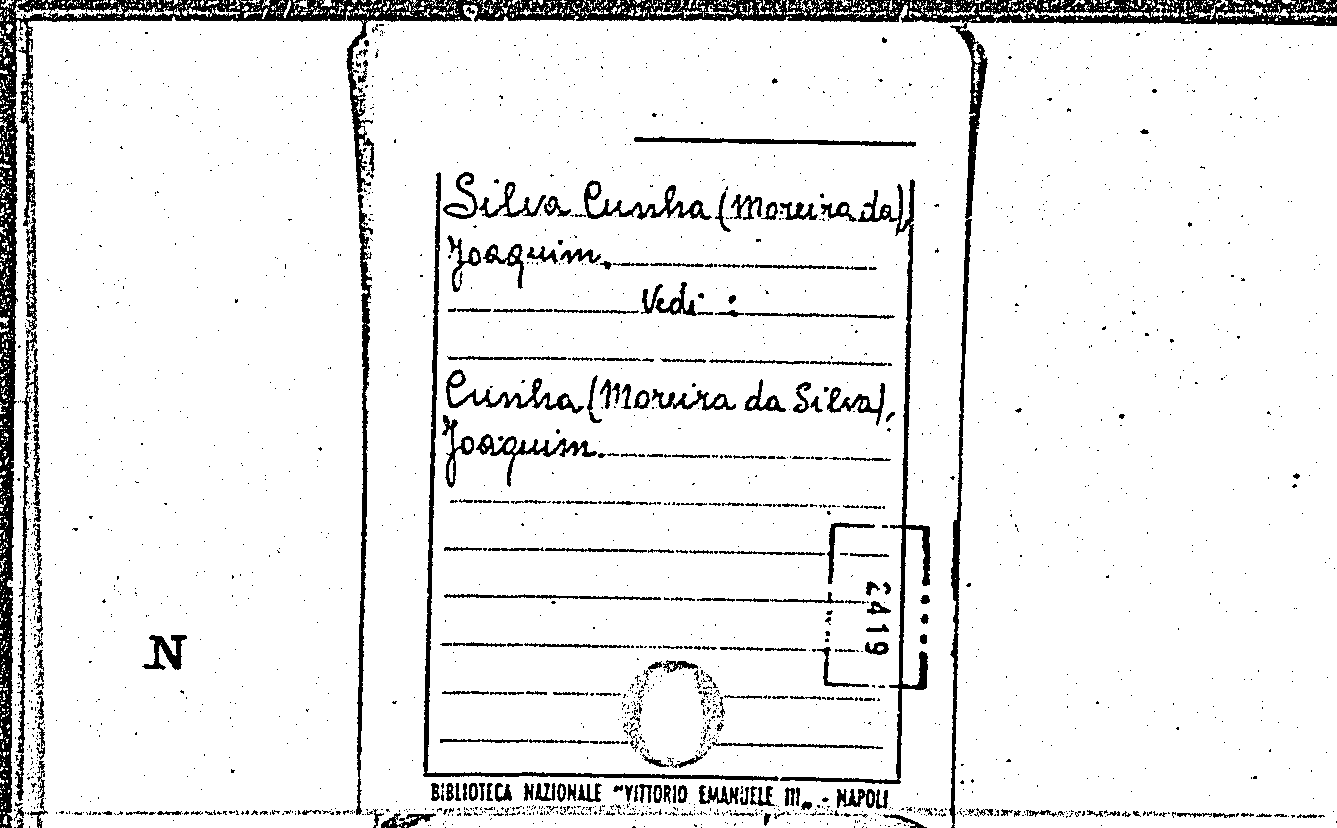 Silva Cunha (Moreira da),
Joaquim.
Vedi :
Cunha (Moreira da Silva),
Joaquim.
2419
N
BIBLIOTECA NAZIONALE "VITTORIO EMANUELE III„ - NAPOLI